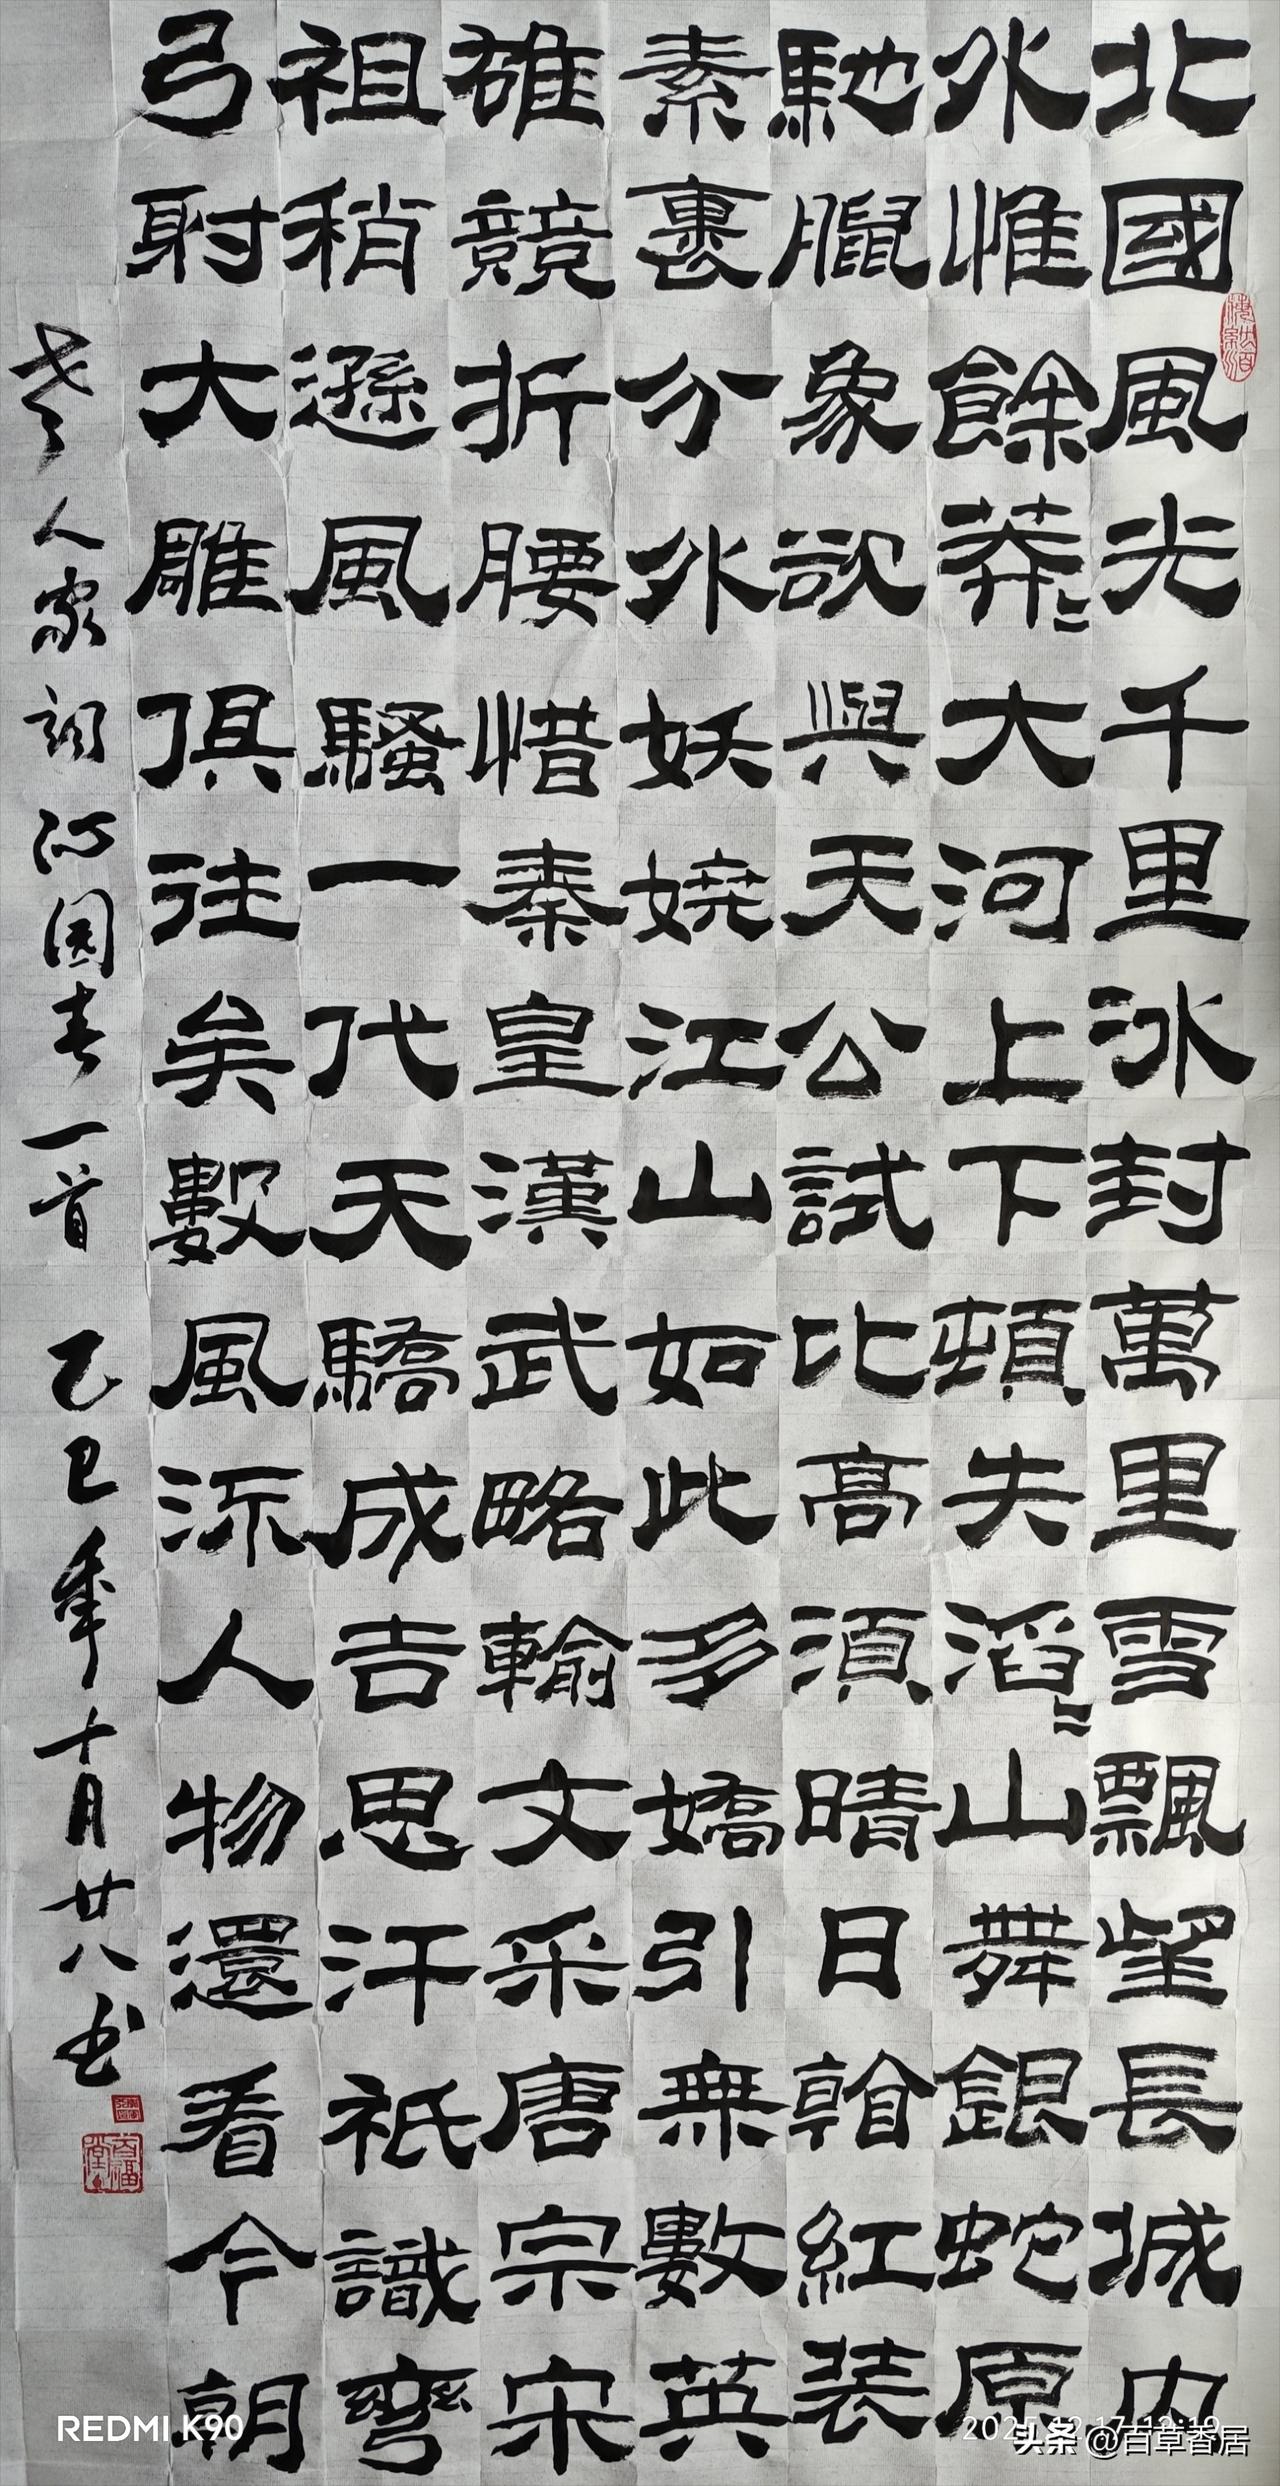 北國風光千里冰封萬里雪飄望長城内
外惟餘莽〻大河上下頓失滔〻山舞銀蛇原
馳臘象欲與天公試比高須晴日看紅裝
素裹分外妖嬈江山如此多嬌引無數英
雄競折腰惜秦皇漢武略輸文采唐宗宋
祖稍遜風騷一代天驕成吉思汗祇識彎
弓射大雕俱往矣數風流人物還看今朝
老人家詞沁園春一首 乙巳年十月廿八書
百福堂
REDMI K90
头条 @百草香居